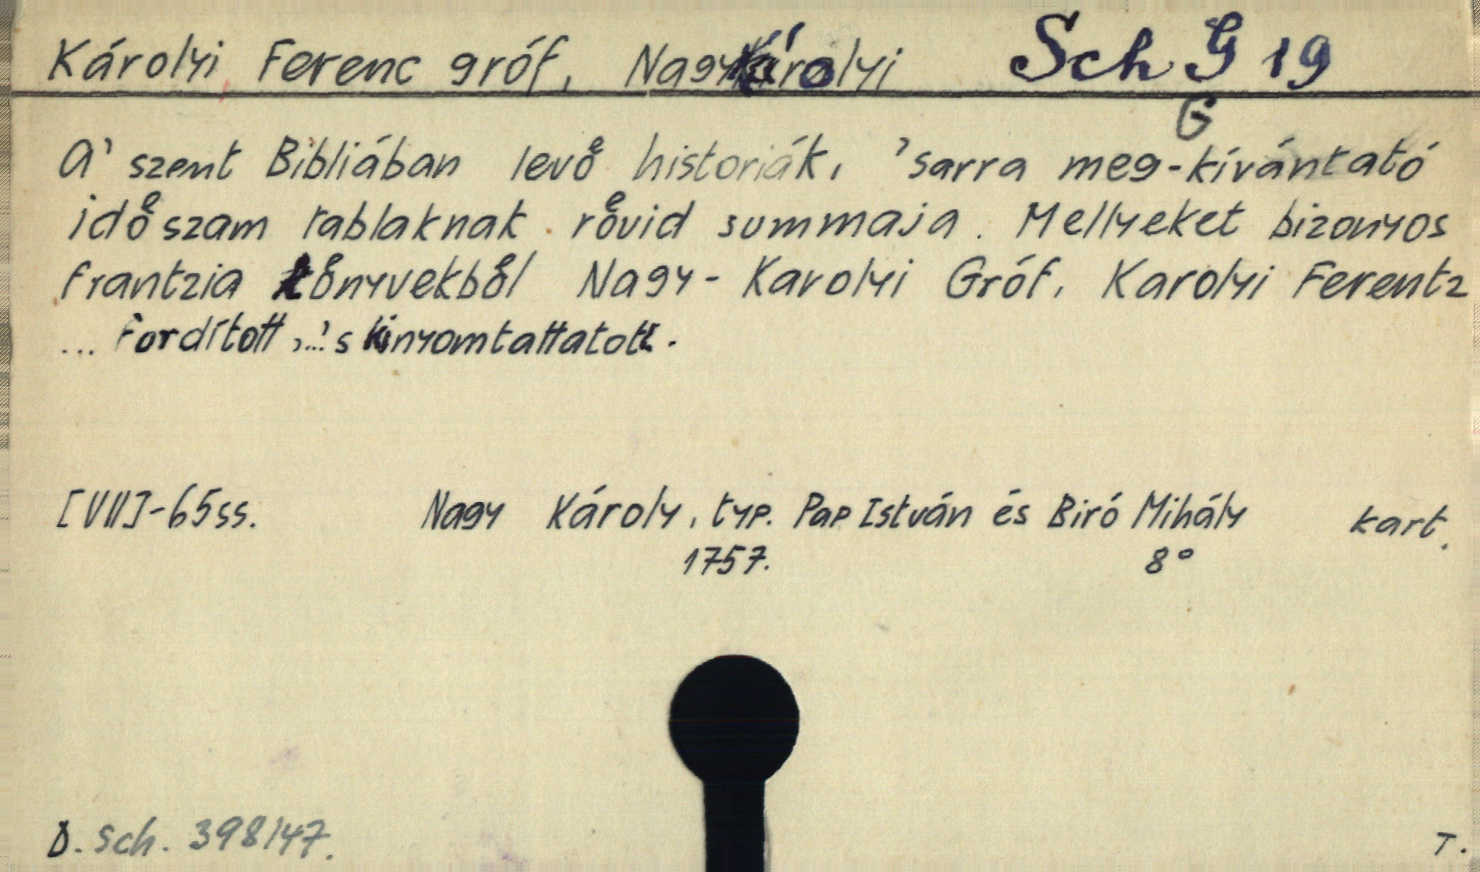 Károlyi Ferenc gróf, Nagykárolyi Sch G 19
G
A' szent Bibliában levő historiák, 'sarra meg-kívántató
idő szam tablaknak rövid summaja. Mellyeket bizonyos
frantzia könyvekből Nagy-Karolyi Gróf, Karolyi Ferentz
... fordított,...'s kinyomtattatott.
[VII]-65ss. Nagy Károly, typ. Pap István és Biró Mihály kart.
1757. 8°
D. sch. 398/47. T.